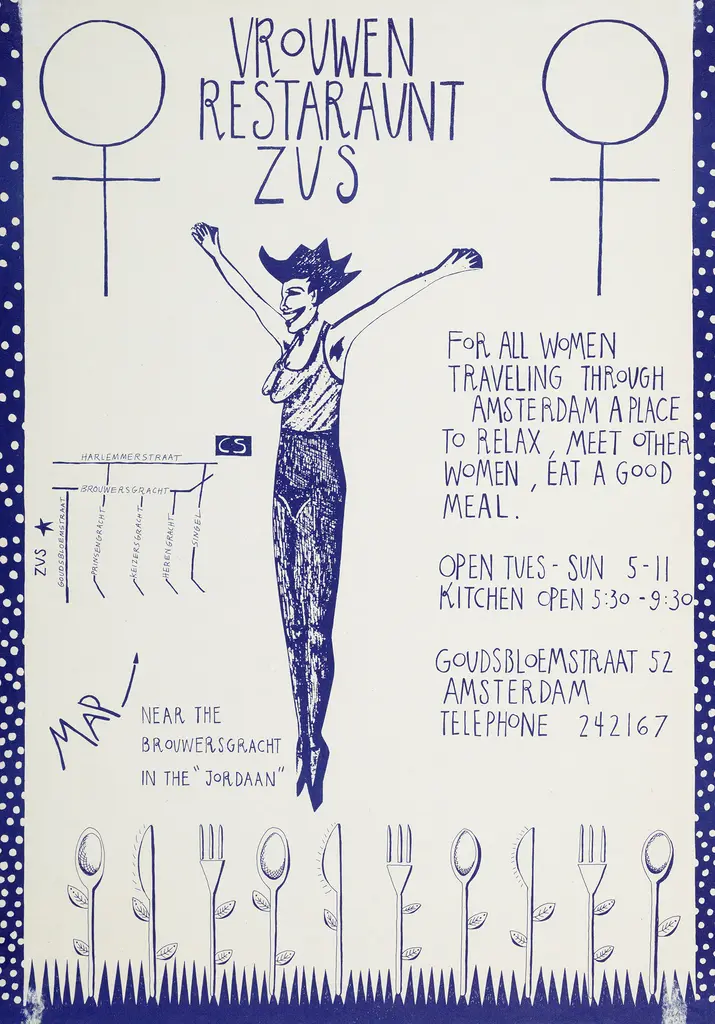 VROUWEN
RESTARAUNT
ZUS
FOR ALL WOMEN
TRAVELING THROUGH
AMSTERDAM A PLACE
TO RELAX, MEET OTHER
WOMEN, EAT A GOOD
MEAL.
OPEN TUES - SUN 5-11
KITCHEN OPEN 5:30 - 9:30
GOUDSBLOEMSTRAAT 52
AMSTERDAM
TELEPHONE 242167
CS
HARLEMMERSTRAAT
BROUWERSGRACHT
ZUS
GOUDSBLOEMSTRAAT
PRINSENGRACHT
KEIZERSGRACHT
HERENGRACHT
SINGEL
MAP
NEAR THE
BROUWERSGRACHT
IN THE "JORDAAN"